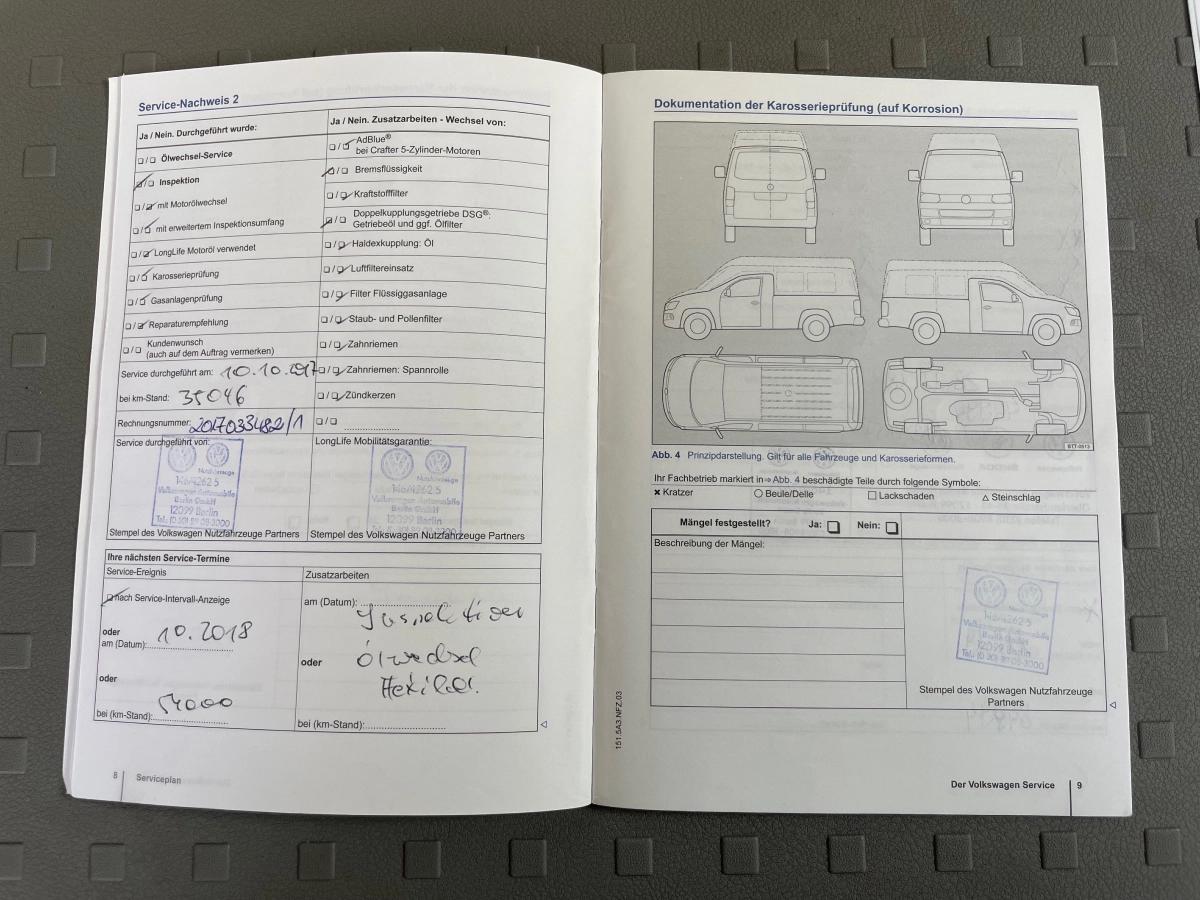 Service-Nachweis 2
Ja / Nein. Durchgeführt wurde:
❑/❑ Ölwechsel-Service
❑/❑ Inspektion
❑/❑ mit Motorölwechsel
❑/❑ mit erweitertem Inspektionsumfang
❑/❑ LongLife Motoröl verwendet
❑/❑ Karosserieprüfung
❑/❑ Gasanlagenprüfung
❑/❑ Reparaturempfehlung
❑/❑ Kundenwunsch
(auch auf dem Auftrag vermerken)
Service durchgeführt am: 10.10.2017
bei km-Stand: 35046
Rechnungsnummer: 2017033482/1
Ja / Nein. Zusatzarbeiten - Wechsel von:
❑/❑ AdBlue®
bei Crafter 5-Zylinder-Motoren
❑/❑ Bremsflüssigkeit
❑/❑ Kraftstofffilter
❑/❑ Doppelkupplungsgetriebe DSG®:
Getriebeöl und ggf. Ölfilter
❑/❑ Haldexkupplung: Öl
❑/❑ Luftfiltereinsatz
❑/❑ Filter Flüssiggasanlage
❑/❑ Staub- und Pollenfilter
❑/❑ Zahnriemen
❑/❑ Zahnriemen: Spannrolle
❑/❑ Zündkerzen
❑/❑
Service durchgeführt von:
Nutzfahrzeuge
Volkswagen Automobile
Berlin GmbH
12099 Berlin
Stempel des Volkswagen Nutzfahrzeuge Partners
LongLife Mobilitätsgarantie:
Nutzfahrzeuge
Volkswagen Automobile
Berlin GmbH
12099 Berlin
Stempel des Volkswagen Nutzfahrzeuge Partners
Ihre nächsten Service-Termine
Service-Ereignis
❑ nach Service-Intervall-Anzeige
oder
am (Datum): 10.2018
oder
bei (km-Stand): 54000
Zusatzarbeiten
am (Datum):
Inspektion
oder
Ölwechsel
bei (km-Stand):
8 Serviceplan
Dokumentation der Karosserieprüfung (auf Korrosion)
BTT-0513
Abb. 4 Prinzipdarstellung. Gilt für alle Fahrzeuge und Karosserieformen.
Ihr Fachbetrieb markiert in ⇒ Abb. 4 beschädigte Teile durch folgende Symbole:
✖ Kratzer ○ Beule/Delle □ Lackschaden △ Steinschlag
Mängel festgestellt? Ja: ❑ Nein: ❑
Beschreibung der Mängel:
Volkswagen Automobile
Berlin GmbH
12099 Berlin
Stempel des Volkswagen Nutzfahrzeuge
Partners
151.5A3.NFZ.03
Der Volkswagen Service 9